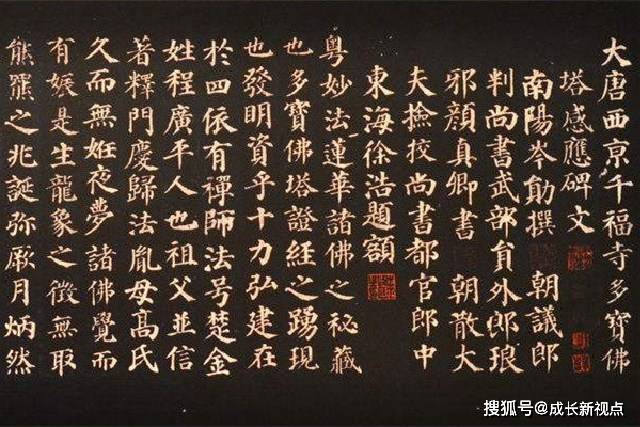 大唐西京千福寺多寶佛
塔感應碑文
南陽岑勛撰 朝議郎
判尚書武部員外郎琅
邪顏真卿書 朝散大
夫撿挍尚書都官郎中
東海徐浩題額
粵妙法蓮華諸佛之秘藏
也多寶佛塔證經之踴現
也發明資乎十力弘建在
於四依有禪師法号楚金
姓程廣平人也祖父並信
著釋門慶歸法胤母高氏
久而無姙夜夢諸佛覺而
有娠是生龍象之徵無取
熊羆之兆誕弥厥月炳然
搜狐号@成长新视点